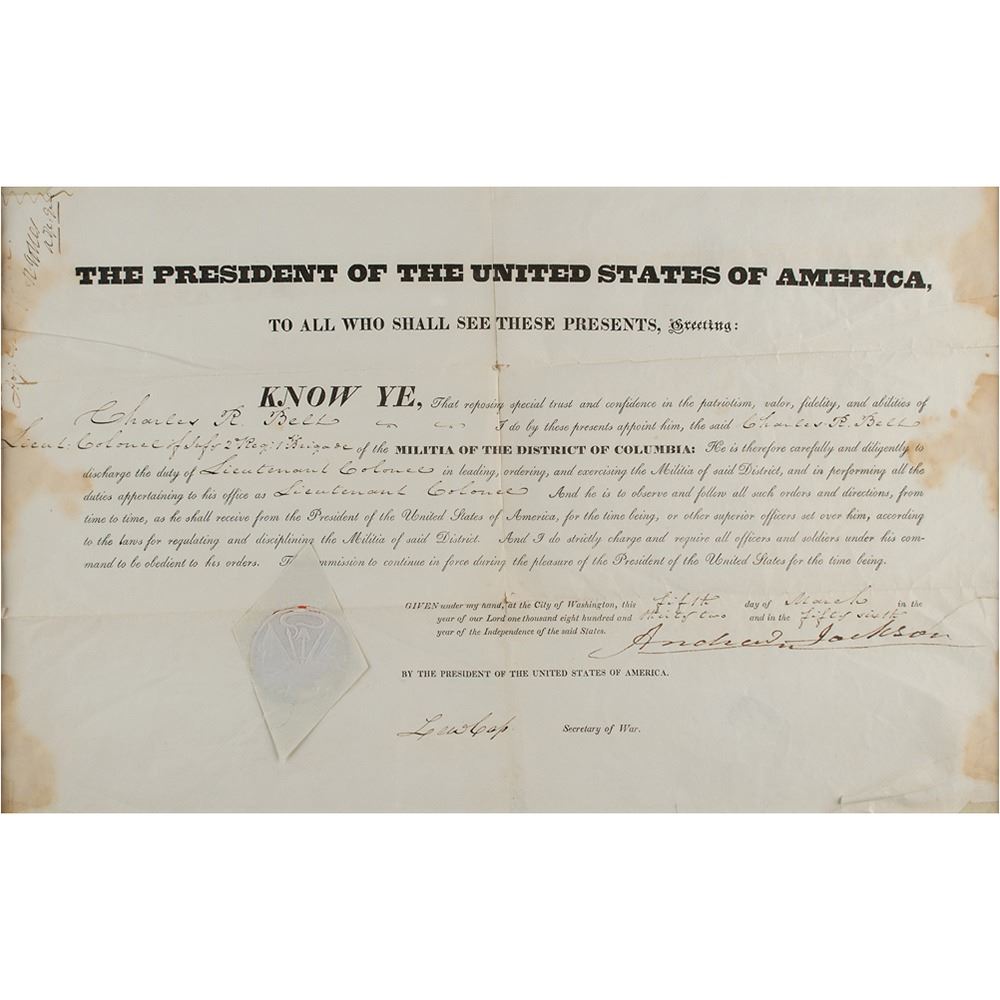 THE PRESIDENT OF THE UNITED STATES OF AMERICA,
TO ALL WHO SHALL SEE THESE PRESENTS, Greeting:
KNOW YE, That reposing special trust and confidence in the patriotism, valor, fidelity, and abilities of
Charles R. Belt I do by these presents appoint him, the said Charles R. Belt
Lieut: Colonel of Infy 2 Reg: 1 Brigade of the MILITIA OF THE DISTRICT OF COLUMBIA: He is therefore carefully and diligently to
discharge the duty of Lieutenant Colonel in leading, ordering, and exercising the Militia of said District, and in performing all the
duties appertaining to his office as Lieutenant Colonel And he is to observe and follow all such orders and directions, from
time to time, as he shall receive from the President of the United States of America, for the time being, or other superior officers set over him, according
to the laws for regulating and disciplining the Militia of said District. And I do strictly charge and require all officers and soldiers under his com-
mand to be obedient to his orders. mmission to continue in force during the pleasure of the President of the United States for the time being.
GIVEN under my hand, at the City of Washington, this fifth day of March in the
year of our Lord one thousand eight hundred and thirty two and in the fifty sixth
year of the Independence of the said States.
Andrew Jackson
BY THE PRESIDENT OF THE UNITED STATES OF AMERICA.
Lew Cass Secretary of War.